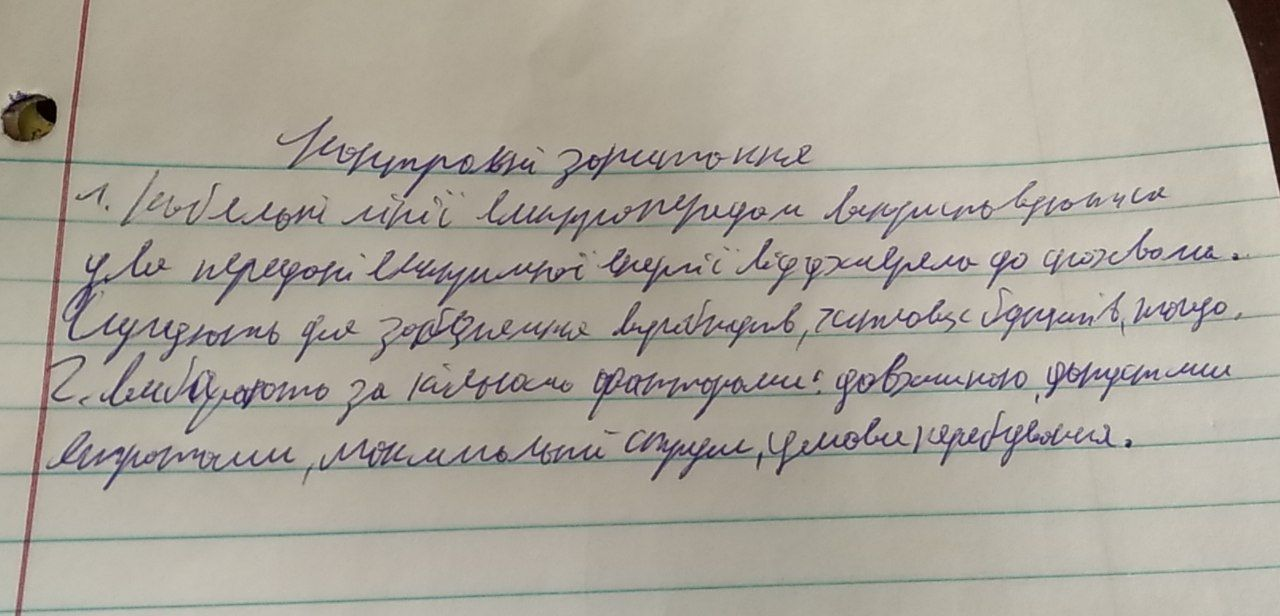 Контрольні запитання
1. Кабельні лінії електропередач використовуються
для передачі електричної енергії від джерела до споживача.
Слугують для забезпечення виробництв, житлових будинків, тощо.
2. Вибирають за кількома факторами: довжиною, допустими
втратами, максимальний струм, умови перебування.